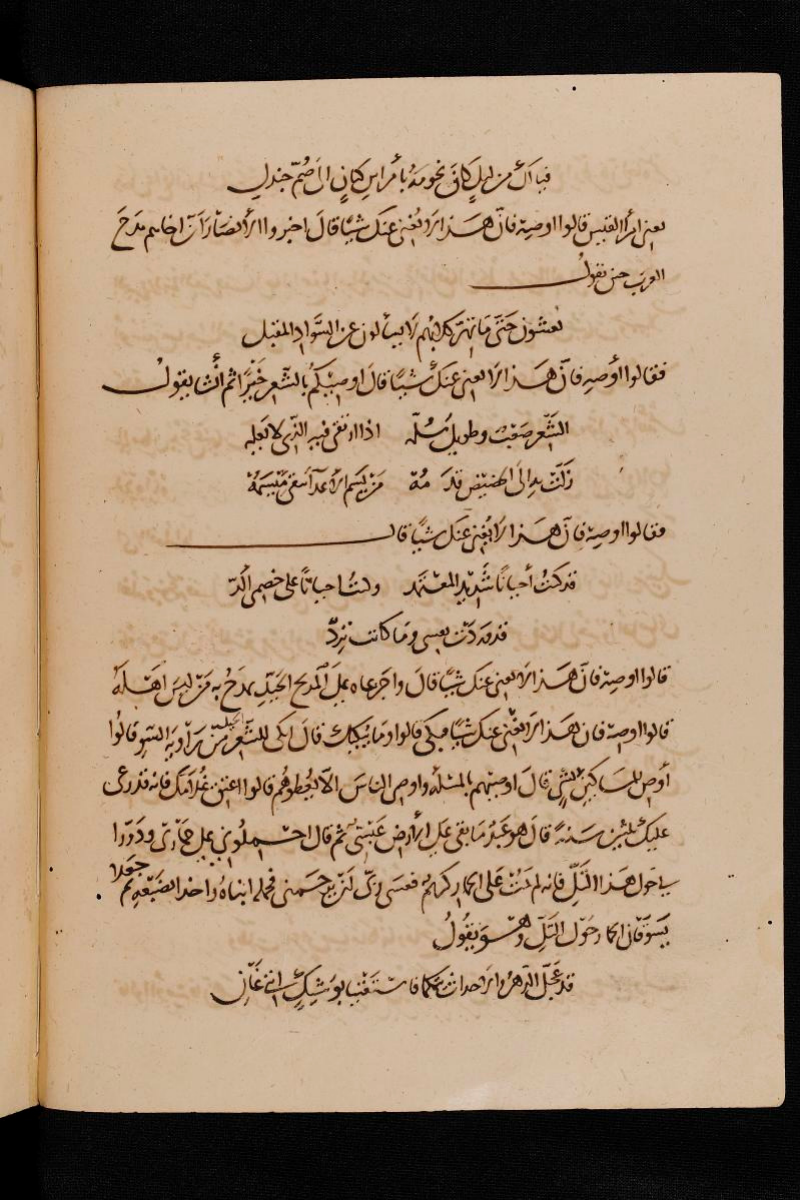 فيا لك من ليلٍ كانّ نجومهُ بأمراسِ كتانٍ الى صُمّ جندلِ
يعنى امرأ القيس قالوا اوصِهْ فانّ هذا لا يُغنى عنك شيئًا قالَ اخبروا الأنصارَ أنّ اخاهم مدحَ
العربِ حين يقولُ
يغشون حَتَّى مَا تَهرّ كلابُهم لَا يسألون عن السَّواد المقبل
فقالوا أوصِهِ فانّ هذا لا يغنى عنك شيئًا قالَ اوصيكم بالشّعر خَيرًا ثم أنشأ يقولُ
الشّعر صَعبٌ وطويل سُلّمه اذا ارتقى فيه الّذى لا يعلمه
زَلّت به الى الحضيض قدمهُ مَن يسم الأعدآ يبقى مَيسمهُ
فقالوا اوصِهْ فانّ هذا لا يُغنى عنك شيئًا قال
قد كنتُ أحيانًا شَديد المعتمَد وكنتُ احيانًا على خصمى أَلَدّ
قد وردَت نفسى ومَا كادت تَرِدّ
قالوا اوصِهْ فانّ هذا لا يغنى عنك شيئًا قالَ واجزعاه على المديح الجيّدِ يمدحُ به مَن ليس اهلَهُ
قالوا اوصِهْ فان هذا لا يُغنى عنك شيئًا فبكى قالوا ومَا يبكيك قالَ ابكى للشّعر الجيّد من رَاويةِ السّوِ قالُوا
أوصِ للمسَاكينِ بشىٍ قالَ اوصيهم بالمسئلة واوصى الناسَ الّا يُعطوهُم قالوا اعتِق غُلَامَكَ فانه قد رعى
عليك ثلثينَ سَنةً قالَ هو عَبدٌ مَا بقى على الأرض عَبسىّ ثم قال احملُونى على حمارى ودَوّرُوا
بى حول هذا التَلّ فانه لم يَمُت على الحمار كريمٌ فعسَى ربّى اَن يرحمنى فحمله ابناهُ واخذا بضَبْعَيهِ ثم جعلا
يَسوقان الحمار حَول التَلّ وهو يقولُ
قد عجّل الدّهرُ والاحداث يتمكما فاستغنيا بوشيكٍ انّنى عَانِ